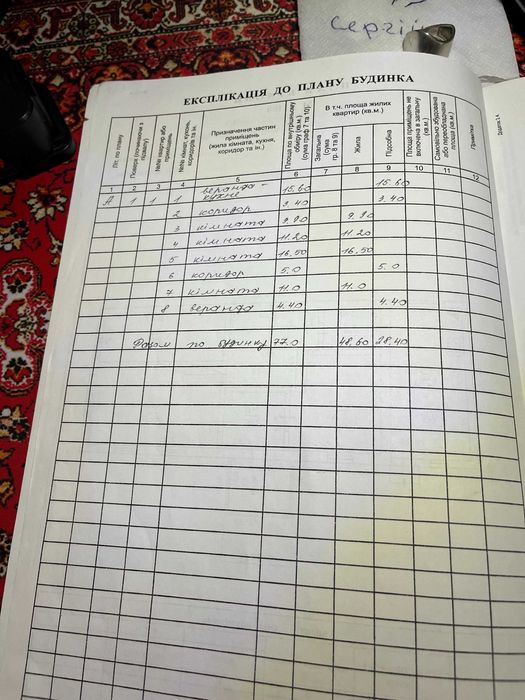 Сергій
ЕКСПЛІКАЦІЯ ДО ПЛАНУ БУДИНКА
Літ. по плану
Поверх (починаючи з підвалу)
№№ квартир або приміщень
№№ кімнат, кухонь, коридорів та ін.
Призначення частин приміщень (жила кімната, кухня, коридор та ін.)
Площа по внутрішньому обміру (кв.м.) (сума граф 7 та 10)
В т.ч. площа жилих квартир (кв.м.)
Загальна (сума гр. 8 та 9)
Жила
Підсобна
Площа приміщень не включена в загальну (кв.м.)
Самовільно збудована або переобладнана площа (кв.м.)
Примітка
1 2 3 4 5 6 7 8 9 10 11 12
А 1 1 1 веранда - кухня 15.60 15.60
2 коридор 3.40 3.40
3 кімната 9.90 9.90
4 кімната 11.20 11.20
5 кімната 16.50 16.50
6 коридор 5.0 5.0
7 кімната 11.0 11.0
8 веранда 4.40 4.40
Разом по будинку 77.0 48.60 28.40